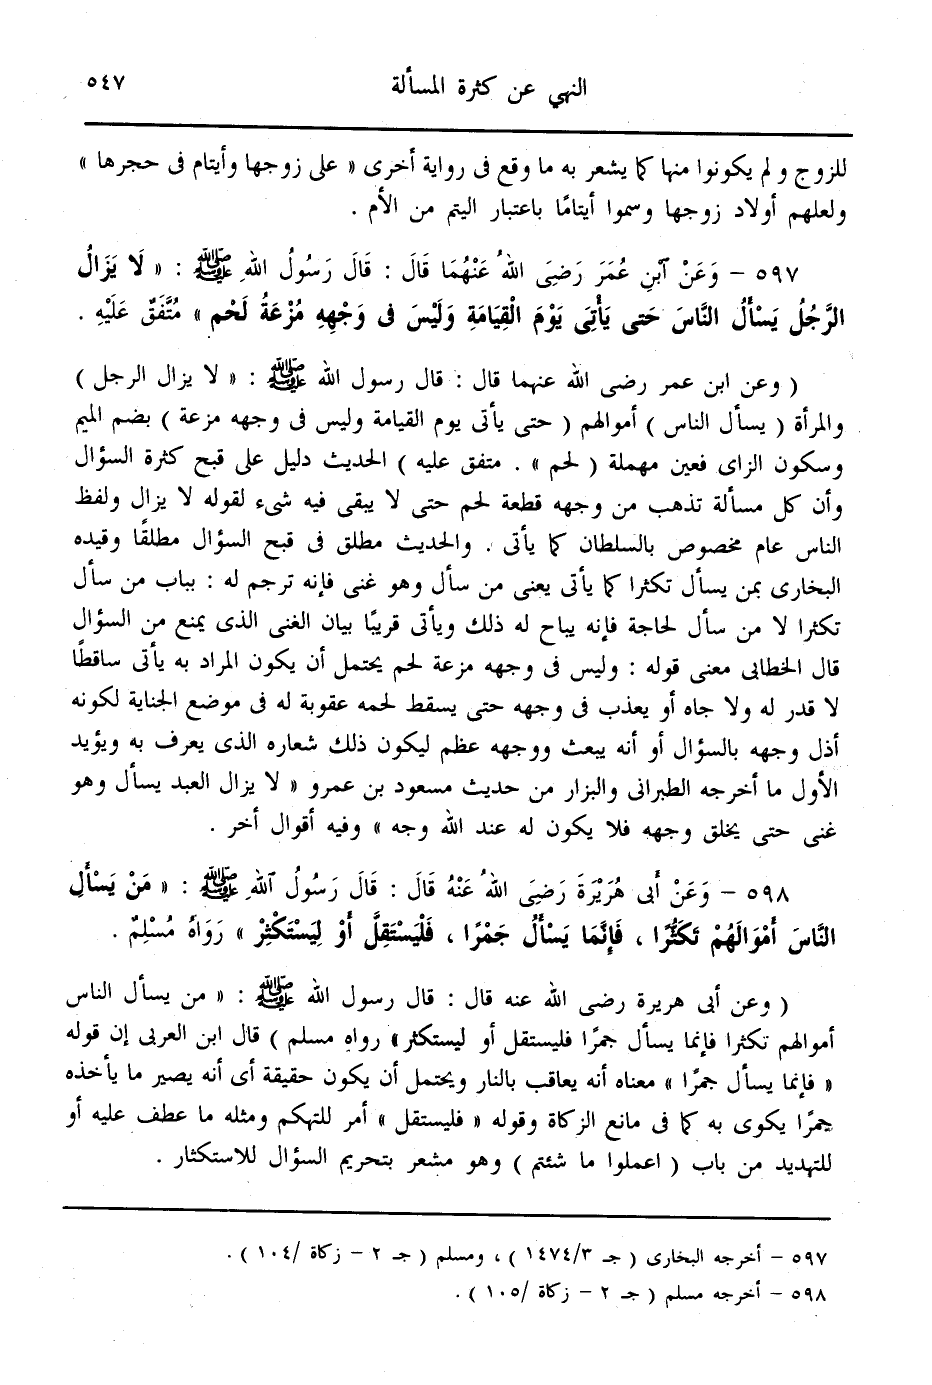 النهي عن كثرة المسألة ٥٤٧
للزوج ولم يكونوا منها كما يشعر به ما وقع فى رواية أخرى « على زوجها وأيتام فى حجرها »
ولعلهم أولاد زوجها وسموا أيتامًا باعتبار اليتم من الأم .
٥٩٧ – وَعَنْ آبْنِ عُمَرَ رَضِىَ اللهُ عَنْهُمَا قَالَ : قَالَ رَسُولُ اللهِ ﷺ : « لَا يَزَالُ
الرَّجُلُ يَسْأَلُ النَّاسَ حَتى يَأْتِى يَوْمَ الْقِيَامَةِ وَلَيْسَ فِى وَجْهِهِ مُزْعَةُ لَحْمٍ » مُتَّفَقٌ عَلَيْهِ .
( وعن ابن عمر رضى الله عنهما قال : قال رسول الله ﷺ : « لا يزال الرجل )
والمرأة ( يسأل الناس ) أموالهم ( حتى يأتى يوم القيامة وليس فى وجهه مزعة ) بضم الميم
وسكون الزاى فعين مهملة ( لحم » . متفق عليه ) الحديث دليل على قبح كثرة السؤال
وأن كل مسألة تذهب من وجهه قطعة لحم حتى لا يبقى فيه شىء لقوله لا يزال ولفظ
الناس عام مخصوص بالسلطان كما يأتى . والحديث مطلق فى قبح السؤال مطلقًا وقيده
البخارى بمن يسأل تكثرا كما يأتى يعنى من سأل وهو غنى فإنه ترجم له : بباب من سأل
تكثرا لا من سأل لحاجة فإنه يباح له ذلك ويأتى قريبًا بيان الغنى الذى يمنع من السؤال
قال الخطابى معنى قوله : وليس فى وجهه مزعة لحم يحتمل أن يكون المراد به يأتى ساقطًا
لا قدر له ولا جاه أو يعذب فى وجهه حتى يسقط لحمه عقوبة له فى موضع الجناية لكونه
أذل وجهه بالسؤال أو أنه يبعث ووجهه عظم ليكون ذلك شعاره الذى يعرف به ويؤيد
الأول ما أخرجه الطبرانى والبزار من حديث مسعود بن عمرو « لا يزال العبد يسأل وهو
غنى حتى يخلق وجهه فلا يكون له عند الله وجه » وفيه أقوال أخر .
٥٩٨ – وَعَنْ أَبى هُرَيْرَةَ رَضِىَ اللهُ عَنْهُ قَالَ : قَالَ رَسُولُ آللهِ ﷺ : « مَنْ يَسْأَلِ
النَّاسَ أَمْوَالَهُمْ تَكَثُّرًا ، فَإِنَّمَا يَسْأَلُ جَمْرًا ، فَلْيَسْتَقِلَّ أَوْ لِيَسْتَكْثِرْ » رَوَاهُ مُسْلِمٌ .
( وعن أبى هريرة رضى الله عنه قال : قال رسول الله ﷺ : « من يسأل الناس
أموالهم تكثرا فإنما يسأل جمرًا فليستقل أو ليستكثر » رواه مسلم ) قال ابن العربى إن قوله
« فإنما يسأل جمرًا » معناه أنه يعاقب بالنار ويحتمل أن يكون حقيقة أى أنه يصير ما يأخذه
جمرًا يكوى به كما فى مانع الزكاة وقوله « فليستقل » أمر للتهكم ومثله ما عطف عليه أو
للتهديد من باب ( اعملوا ما شئتم ) وهو مشعر بتحريم السؤال للاستكثار .
٥٩٧ – أخرجه البخارى ( جـ ١٤٧٤/٣ ) ، ومسلم ( جـ ٢ – زكاة /١٠٤ ) .
٥٩٨ – أخرجه مسلم ( جـ ٢ – زكاة /١٠٥ ) .